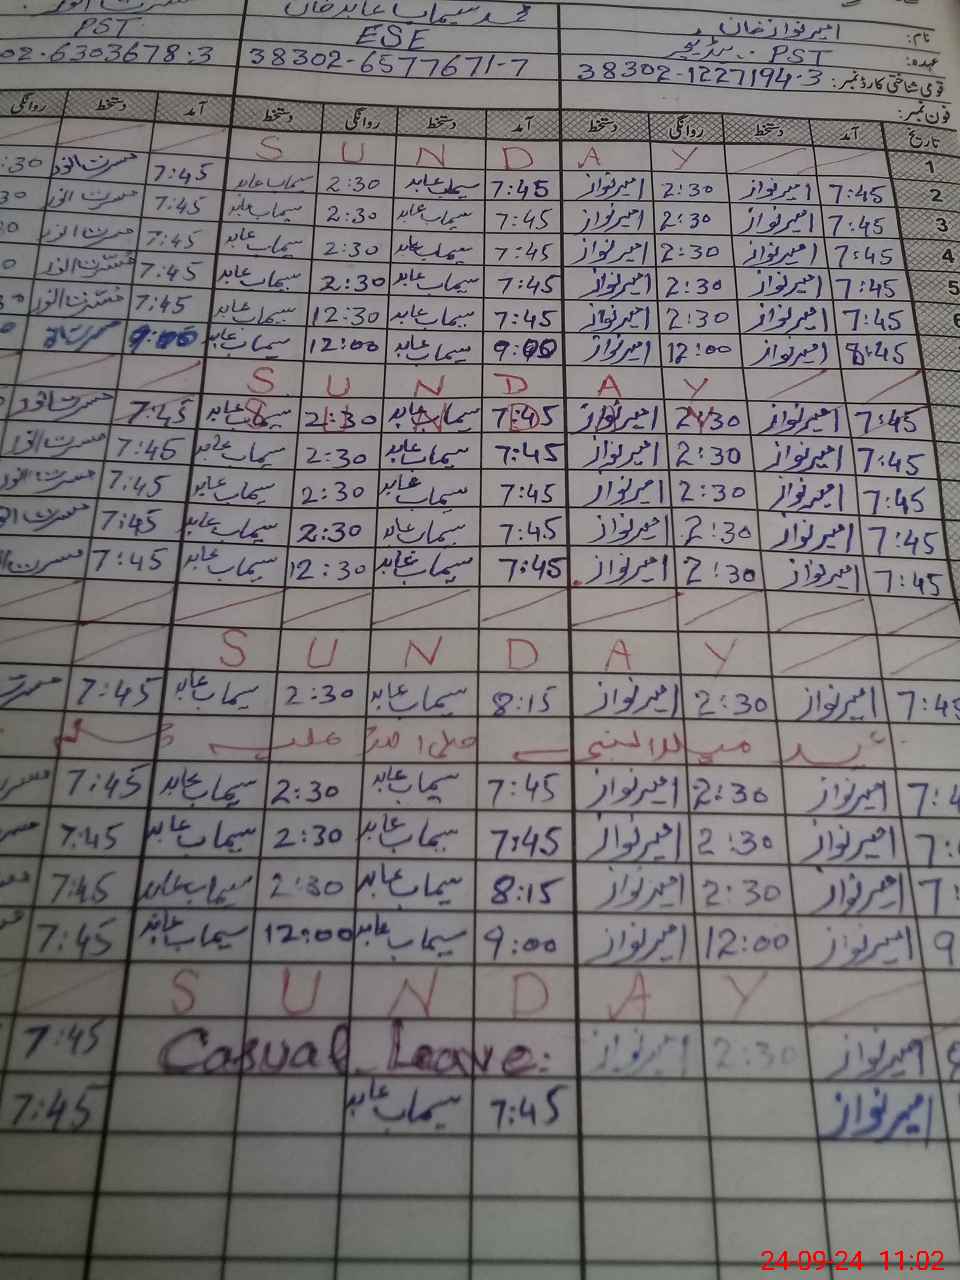 نام: امیر نواز خان محمد سیماب عابد خان
عہدہ: PST ESE PST
قومی شناختی کارڈ نمبر: 38302-1227194-3 38302-6577671-7 02-6303678-3
فون نمبر:
تاریخ آمد دستخط روانگی دستخط آمد دستخط روانگی دستخط آمد دستخط روانگی
1 S U N D A Y
2 7:45 امیر نواز 2:30 امیر نواز 7:45 سیماب عابد 2:30 سیماب عابد 7:45 مسرت النور :30
3 7:45 امیر نواز 2:30 امیر نواز 7:45 سیماب عابد 2:30 سیماب عابد 7:45 مسرت النور 30
4 7:45 امیر نواز 2:30 امیر نواز 7:45 سیماب عابد 2:30 سیماب عابد 7:45 مسرت النور 30
5 7:45 امیر نواز 2:30 امیر نواز 7:45 سیماب عابد 2:30 سیماب عابد 7:45 مسرت النور 0
6 7:45 امیر نواز 2:30 امیر نواز 7:45 سیماب عابد 12:30 سیماب عابد 7:45 مسرت النور 30
8:45 امیر نواز 12:00 امیر نواز 9:00 سیماب عابد 12:00 سیماب عابد 9:00 0
S U N D A Y
7:45 امیر نواز 2:30 امیر نواز 7:45 سیماب عابد 2:30 سیماب عابد 7:45 مسرت النور
7:45 امیر نواز 2:30 امیر نواز 7:45 سیماب عابد 2:30 سیماب عابد 7:45 مسرت النور
7:45 امیر نواز 2:30 امیر نواز 7:45 سیماب عابد 2:30 سیماب عابد 7:45 مسرت النور
7:45 امیر نواز 2:30 امیر نواز 7:45 سیماب عابد 2:30 سیماب عابد 7:45 مسرت
7:45 امیر نواز 2:30 امیر نواز 7:45 سیماب عابد 12:30 سیماب عابد 7:45 مسرت
S U N D A Y
7:45 امیر نواز 2:30 امیر نواز 8:15 سیماب عابد 2:30 سیماب عابد 7:45 مسرت
عید میلاد النبی صلی اللہ علیہ وسلم
7:4 امیر نواز 2:30 امیر نواز 7:45 سیماب عابد 2:30 سیماب عابد 7:45
7: امیر نواز 2:30 امیر نواز 7:45 سیماب عابد 2:30 سیماب عابد 7:45
7: امیر نواز 2:30 امیر نواز 8:15 سیماب عابد 2:30 سیماب عابد 7:45
9 امیر نواز 12:00 امیر نواز 9:00 سیماب عابد 12:00 سیماب عابد 7:45
S U N D A Y
امیر نواز 2:30 امیر نواز Casual Leave: 7:45
امیر نواز 7:45 سیماب عابد 7:45
24-09-24 11:02